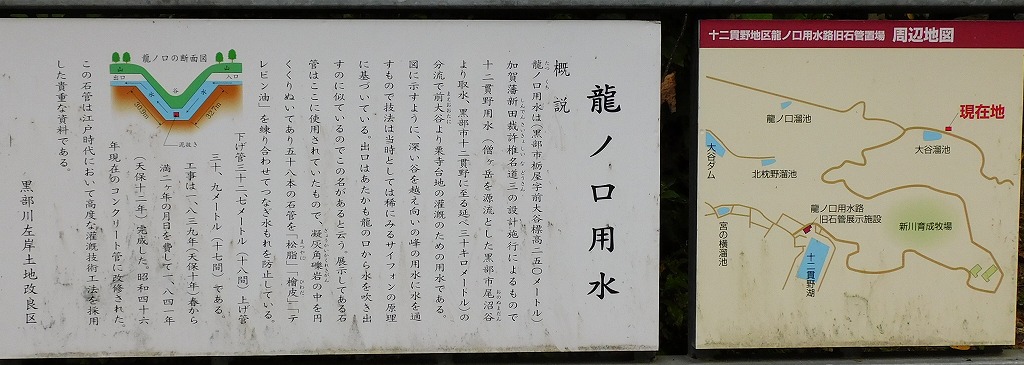 龍ノ口用水
概説
龍ノ口用水は（黒部市栃屋字前大谷標高二五〇メートル）
加賀藩新田裁許椎名道三の設計施行によるもので
十二貫野用水（僧ヶ岳を源流とした黒部市尾沼谷
より取水、黒部市十二貫野に至る延べ三十キロメートル）の
分流で前大谷より栗寺台地の灌漑のための用水である。
図に示すように、深い谷を越え向いの峰の用水に水を通
すもので技法は当時としては稀にみるサイフォンの原理
に基づいている。出口はあたかも龍の口から水を吹き出
すのに似ているのでこの名があると云う。展示してある石
管はここに使用されていたもので、凝灰角礫岩の中を円
くくりぬいてあり五十八本の石管を「松脂」「檜皮」「テ
レビン油」を練り合わせてつなぎ水もれを防止している。
下げ管三十二・七メートル（十八間）上げ管
三十、九メートル（十七間）である
工事は一八三九年（天保十年）春から
満二ヶ年の月日を費して一八四一年
（天保十二年）完成した。昭和四十六
年現在のコンクリート管に改修された。
この石管は江戸時代において高度な灌漑技術工法を採用
した貴重な資料である。
黒部川左岸土地改良区
龍ノ口の断面図
山
山
出口
谷
入口
水
水
30.9m
32.7m
泥抜き
十二貫野地区龍ノ口用水路旧石管置場 周辺地図
現在地
龍ノ口溜池
大谷溜池
大谷ダム
北枕野溜池
龍ノ口用水路
旧石管展示施設
宮の横溜池
十二貫野湖
新川育成牧場